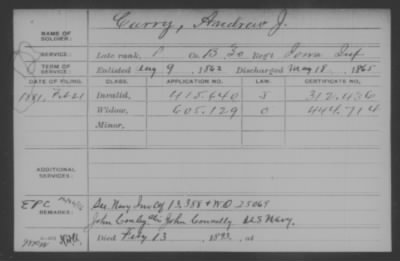 NAME OF SOLDIER: Curry, Andrew J.
SERVICE: Late rank, P Co. B Regt Iowa Inf
TERM OF SERVICE: Enlisted Aug 9, 1862 Discharged May 18, 1865
DATE OF FILING. CLASS. APPLICATION NO. LAW. CERTIFICATE NO.
1881, Feb 21 Invalid, 415.640 312.436
Widow, 605.129 444.714
Minor,
ADDITIONAL SERVICES:
EPC
REMARKS: See Navy Inv Of 13,388 + WO 25069
John Conley John Connelly U.S. Navy.
Died Feby 13, 189, at